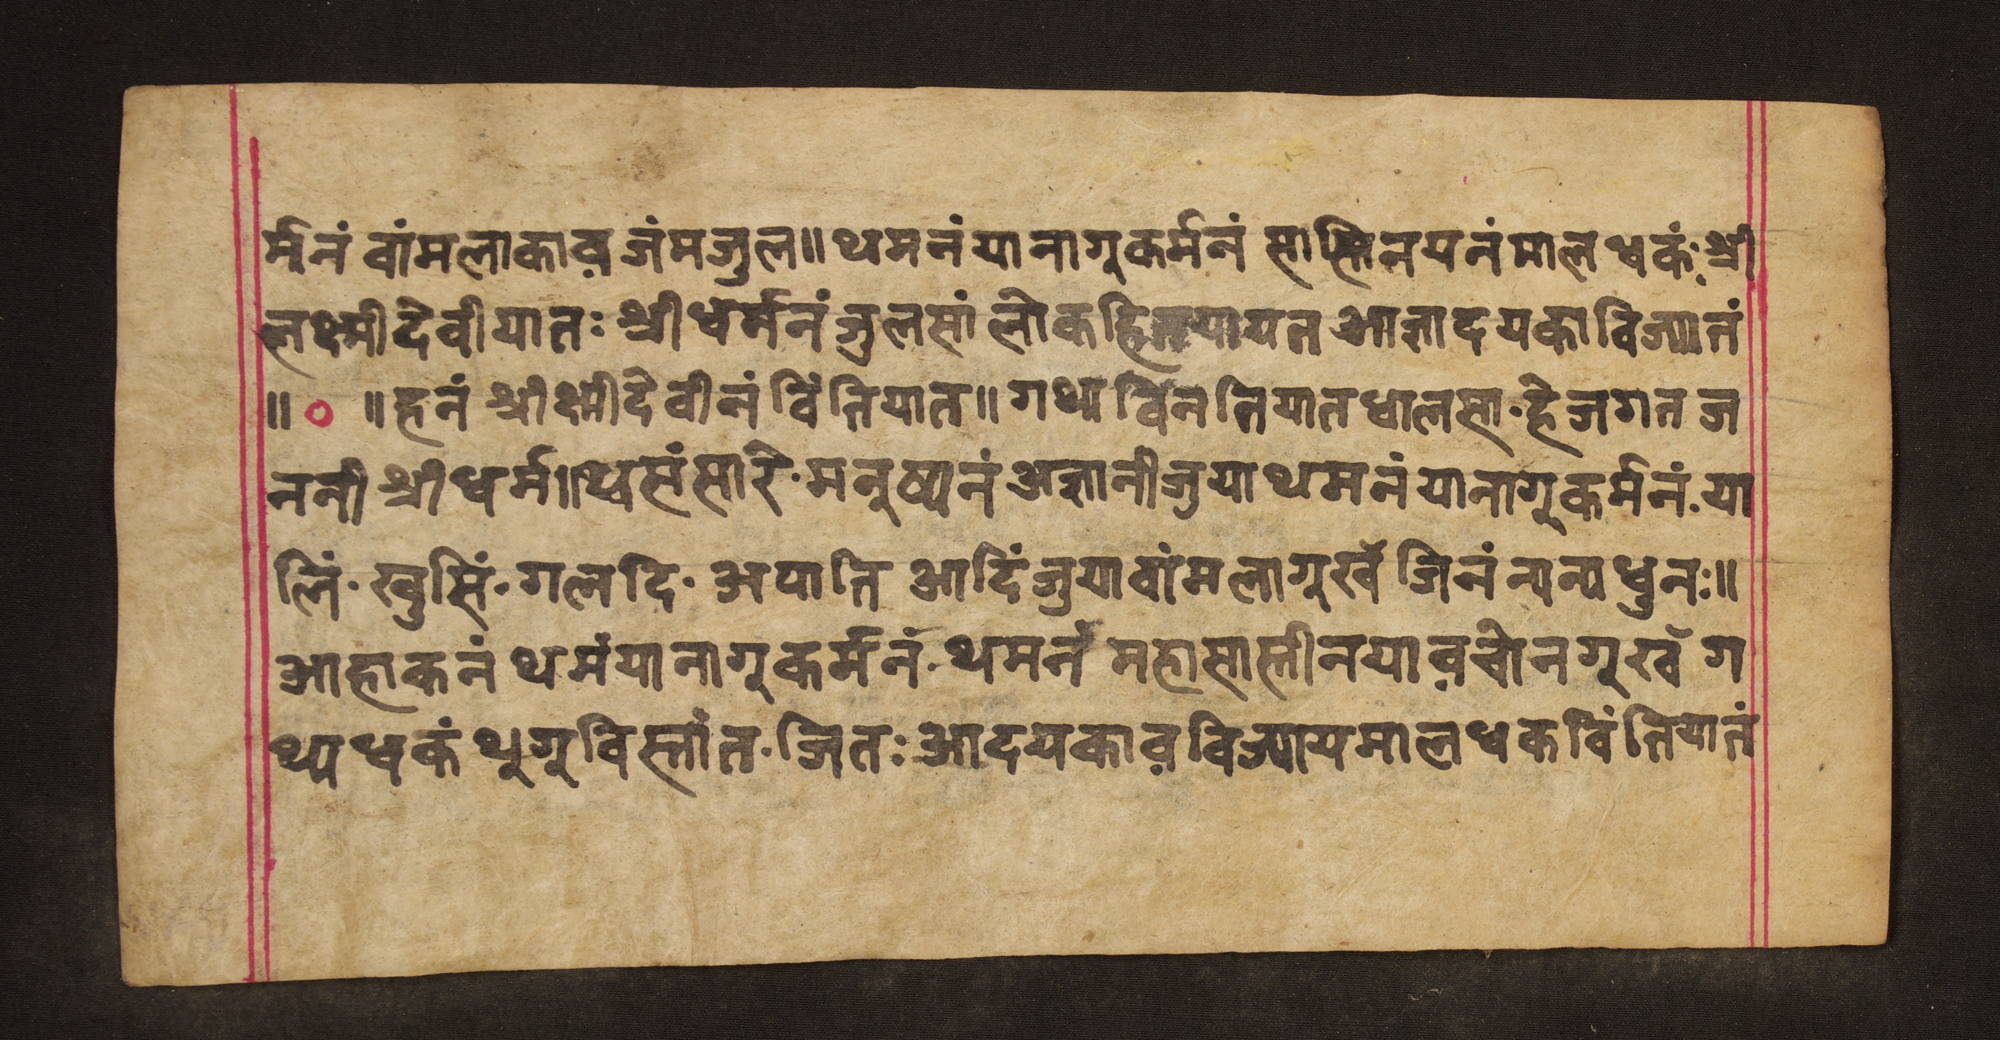 र्मनं वांमलाकाव़ जंमजुल॥ थमनं यानागुकर्मनं सास्तिनयनं मालधकं॰ श्री
लक्ष्मीदेवीयातः श्रीधर्मनं जुलसां लोकहितयायत आज्ञादयका विज्यातं
॥ ० ॥ हनं श्रीक्ष्मीदेवीनं विंतियात॥ गथ्य विनतियातधालसा॰ हे जगतज
ननी श्रीधर्म॥ थ्वसंसारे॰ मनुष्यनं अज्ञानीजुया थमनं यानागूकर्मनं॰ या
लिं॰ खुसिं॰ गलदि॰ अपाति आदिं जुयावांमलागुखँ जिनं न्यन्यधुनः॥
आहाकनं थमंयानागूकर्मनं॰ थमनं महासास्तीनयाव़चोनगूखँ ग
थ्यधकं थुगूविस्तांत॰ जितः आदयकाव़ विज्यायमालधक विंतियातं